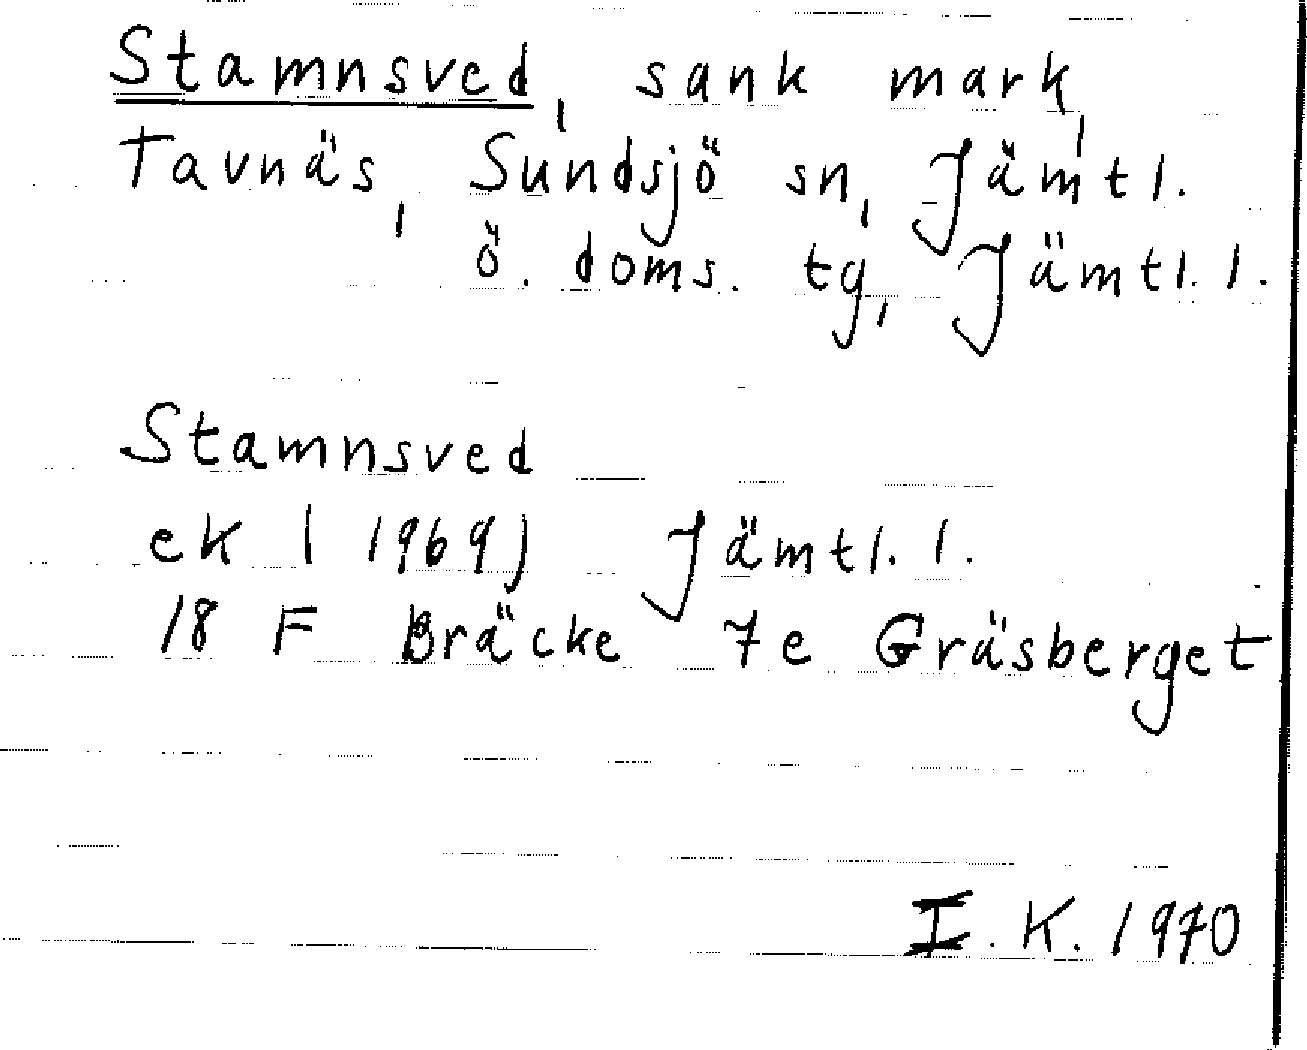 Stamnsved, sank mark,
Tavnäs, Sundsjö sn, Jämtl.
ö. doms. tg, Jämtl. l.
Stamnsved
ek (1969) Jämtl. l.
18 F Bräcke 7e Gräsberget
I. K. 1970